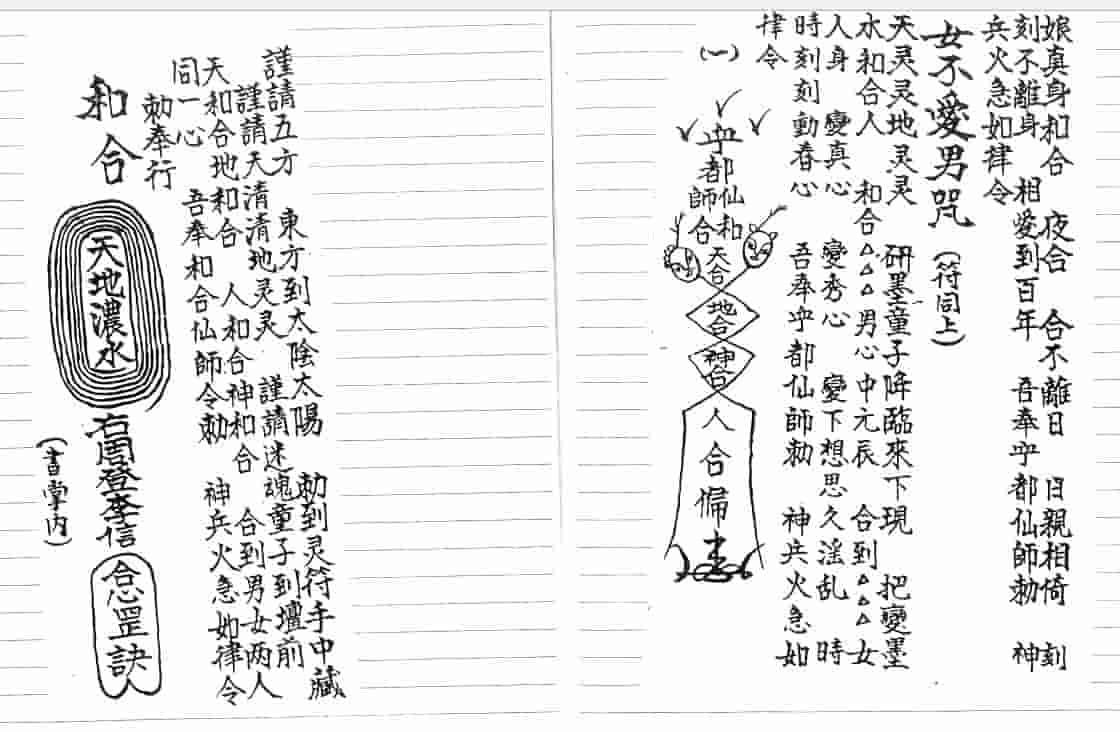 娘真身和合　夜合　合不離日　日親相倚　刻
刻不離身　相愛到百年　吾奉乎都仙師勅　神
兵火急如律令
女不愛男咒（符同上）
天灵灵地灵灵　研墨童子降臨來下現　把變墨
水和合人　和合△△△男心中元辰　合到△△△女
人身　變真心　變秀心　變下想思久淫乱　時
時刻刻動春心　吾奉乎都仙師勅　神兵火急如
律令
（一）
乎都仙師和合
天合
地合
神合
人合
謹請五方　東方到太陰太陽　勅到灵符手中藏
謹請天清清地灵灵　謹請迷魂童子到壇前
天和合地和合　人和合神和合　合到男女两人
同一心　吾奉和合仙師令勅　神兵火急如律令
勅奉行
和合
天地濃水
右周登李信
合罡訣
（書掌内）